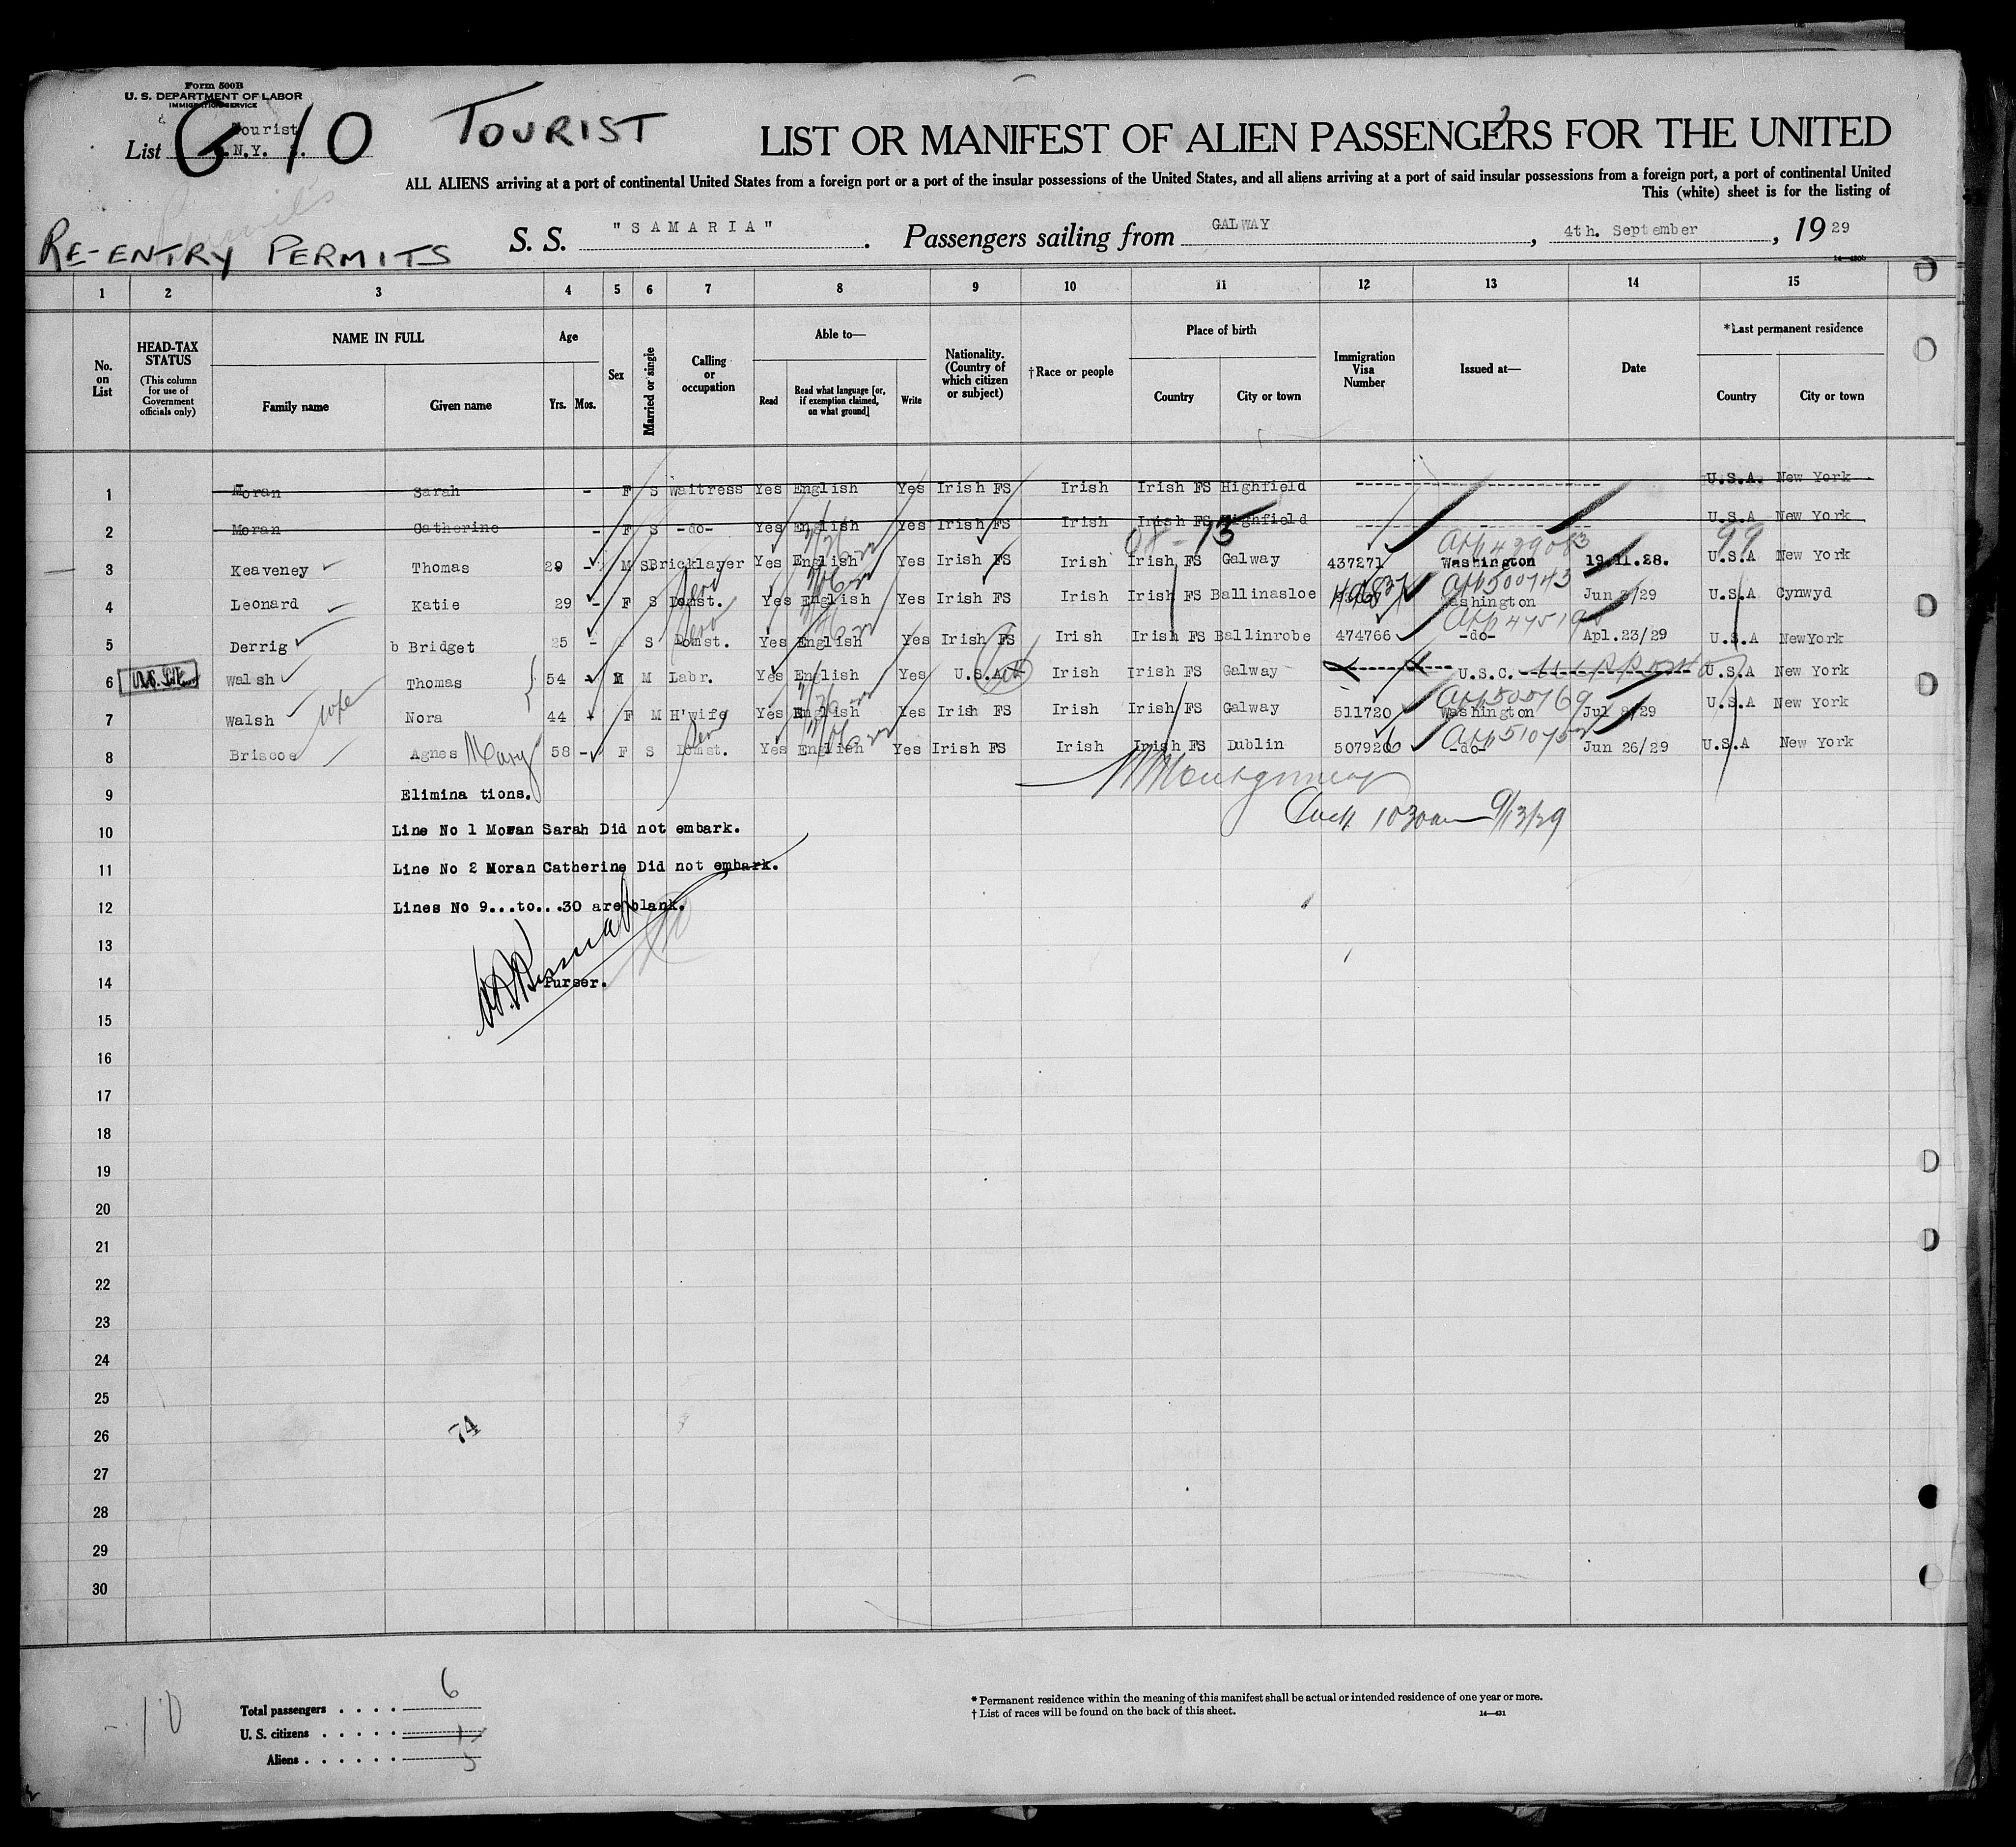 Form 500B
U. S. DEPARTMENT OF LABOR
IMMIGRATION SERVICE
Tourist
List N.Y.
G 10
TOURIST
LIST OR MANIFEST OF ALIEN PASSENGERS FOR THE UNITED
ALL ALIENS arriving at a port of continental United States from a foreign port or a port of the insular possessions of the United States, and all aliens arriving at a port of said insular possessions from a foreign port, a port of continental United
This (white) sheet is for the listing of
RE-ENTRY PERMITS
S. S. "SAMARIA". Passengers sailing from GALWAY, 4th. September, 1929
14—430b
1 2 3 4 5 6 7 8 9 10 11 12 13 14 15
No. on List
HEAD-TAX STATUS (This column for use of Government officials only)
NAME IN FULL Family name Given name
Age Yrs. Mos.
Sex
Married or single
Calling or occupation
Able to— Read Read what language [or, if exemption claimed, on what ground] Write
Nationality. (Country of which citizen or subject)
†Race or people
Place of birth Country City or town
Immigration Visa Number
Issued at—
Date
*Last permanent residence Country City or town
1 Moran Sarah - F S Waitress Yes English Yes Irish FS Irish Irish FS Highfield U.S.A. New York
2 Moran Catherine - F S -do- Yes English Yes Irish FS Irish Irish FS Highfield U.S.A New York
13 99
App 439083
3 Keaveney Thomas 29 - M S Bricklayer Yes English Yes Irish FS Irish Irish FS Galway 437271 Washington 19.11.28. U.S.A New York
App 500743
4 Leonard Katie 29 - F S Domst. Yes English Yes Irish FS Irish Irish FS Ballinasloe Washington Jun /29 U.S.A Cynwyd
5 Derrig b Bridget 25 - F S Domst. Yes English Yes Irish FS Irish Irish FS Ballinrobe 474766 -do- Apl.23/29 U.S.A NewYork
6 Walsh Thomas 54 - M M Labr. Yes English Yes U.S.A Irish Irish FS Galway U.S.C. U.S.A New York
App 505769
7 Walsh wife Nora 44 F M H'wife Yes English Yes Irish FS Irish Irish FS Galway 511720 Washington Jul 8/29 U.S.A New York
8 Briscoe Agnes Mary 58 - F S Domst. Yes English Yes Irish FS Irish Irish FS Dublin 507920 -do- Jun 26/29 U.S.A New York
Montgomery
9 Elimina tions.
1030am 9/13/29
10 Line No 1 Moran Sarah Did not embark.
11 Line No 2 Moran Catherine Did not embark.
12 Lines No 9...to...30 are blank.
13
14 Purser.
15
16
17
18
19
20
21
22
23
24
25
26
74
27
28
29
30
10
Total passengers . . . . 6
U. S. citizens . . . . . 1
Aliens . . . . . . 5
* Permanent residence within the meaning of this manifest shall be actual or intended residence of one year or more.
† List of races will be found on the back of this sheet.
14—431